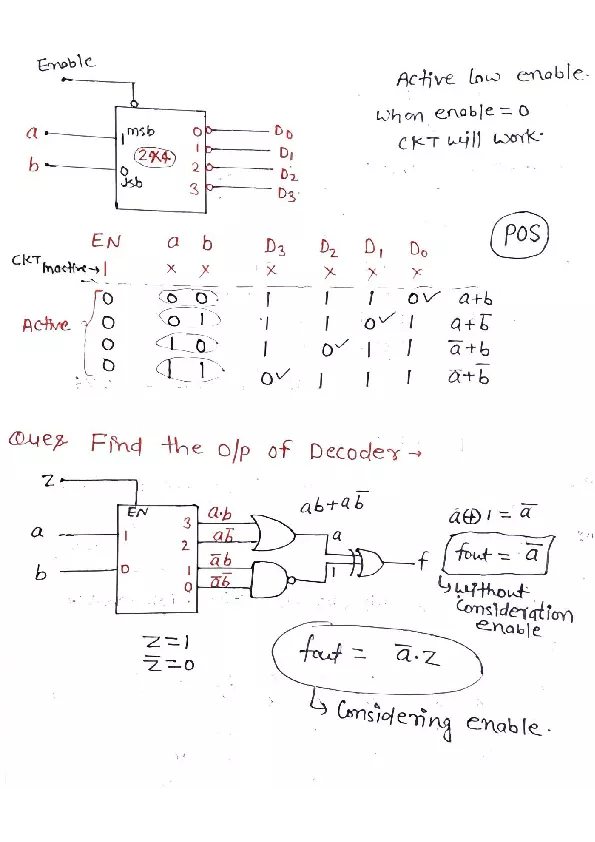 Enable
Active low enable.
When enable = 0
CKT will work.
a
msb
1
0
D0
b
2X4
1
D1
0
lsb
2
D2
3
D3
POS
EN a b D3 D2 D1 D0
CKT Inactive → 1 x x x x x x
0 0 0 1 1 1 0✓ a+b
Active 0 0 1 1 1 0✓ 1 a+b̅
0 1 0 1 0✓ 1 1 a̅+b
0 1 1 0✓ 1 1 1 a̅+b̅
Ques Find the o/p of Decoder →
Z
EN
ab+ab̅
a⊕1 = a̅
a
1
3
a·b
2
ab̅
a
f
fout = a̅
b
0
1
a̅b
1
0
a̅b̅
↳ without consideration enable
Z=1
Z̅=0
fout = a̅.Z
↳ Considering enable.